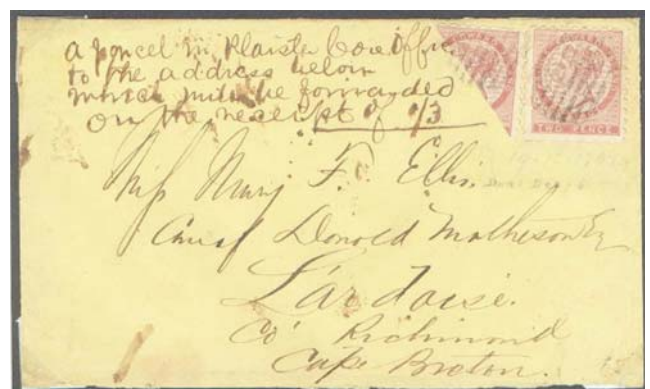 a parcel in Plaister Cove Office
to the address below
which will be forwarded
on the receipt of 1/3
TWO PENCE
Miss Mary F. Ellis
Care of Donald Matheson Esq
L'ardoise.
Co' Richmond
Cape Breton.